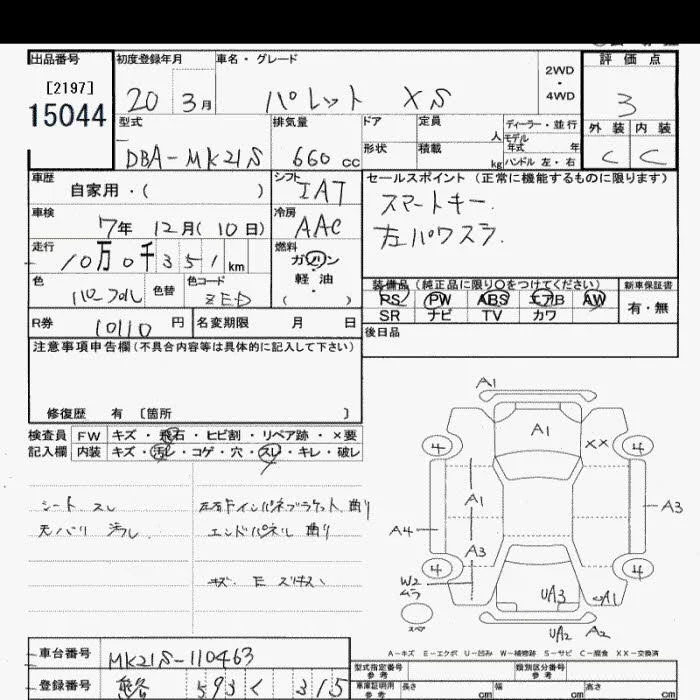 出品番号
[2197]
15044
初度登録年月
20 3月
車名・グレード
パレット XS
2WD
・
4WD
評価点
3
外装 内装
C C
型式
DBA-MK21S
排気量
660 cc
ドア
定員
人
形状
積載
kg
ディーラー・並行
モデル
年式 年
ハンドル 左・右
車歴
自家用・( )
シフト
IAT
車検
7年 12月(10日)
冷房
AAC
走行
10万0千351km
燃料
ガソリン
・
軽油
( )
色
パープル
色替
色コード
ZED
R券
10110円
名変期限 月 日
セールスポイント(正常に機能するものに限ります)
スマートキー.
左パワスラ.
装備品(純正品に限り〇をつけてください)
PS PW ABS エアB AW
SR ナビ TV カワ
新車保証書
有・無
後日品
注意事項申告欄(不具合内容等は具体的に記入して下さい)
修復歴 有 〔箇所 〕
検査員 FW キズ・飛石・ヒビ割・リペア跡・×要
記入欄 内装 キズ・汚レ・コゲ・穴・スレ・キレ・破レ
シート スレ
天バリ 汚レ
左右Fインパネブラケット 曲り
エンドパネル 曲り
キズ E スリキズ
A1
A1
XX
4
4
A1
A3
A4
A3
W2
ムラ
4
4
UA3
A1
スペア
UA2 A2
A-キズ E-エクボ U-凹み W-補修跡 S-サビ C-腐食 XX-交換済
車台番号
MK21S-110463
登録番号
593 く 315
型式指定番号
参考
類別区分番号
参考
車庫証明用
参考
長さ cm
幅 cm
高さ cm